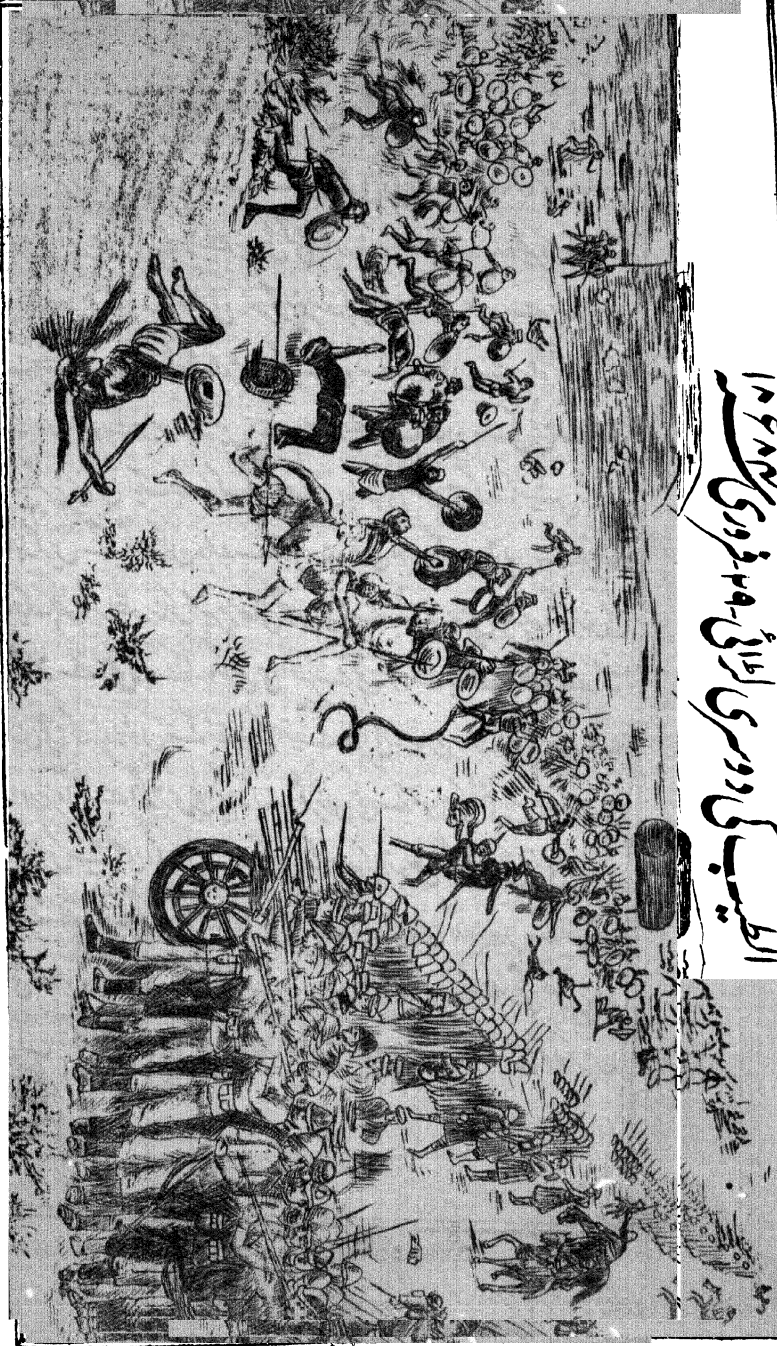 الطیب کی دوسری لڑائی ۲۹۔ فروری سنہ ۱۸۸۴ء